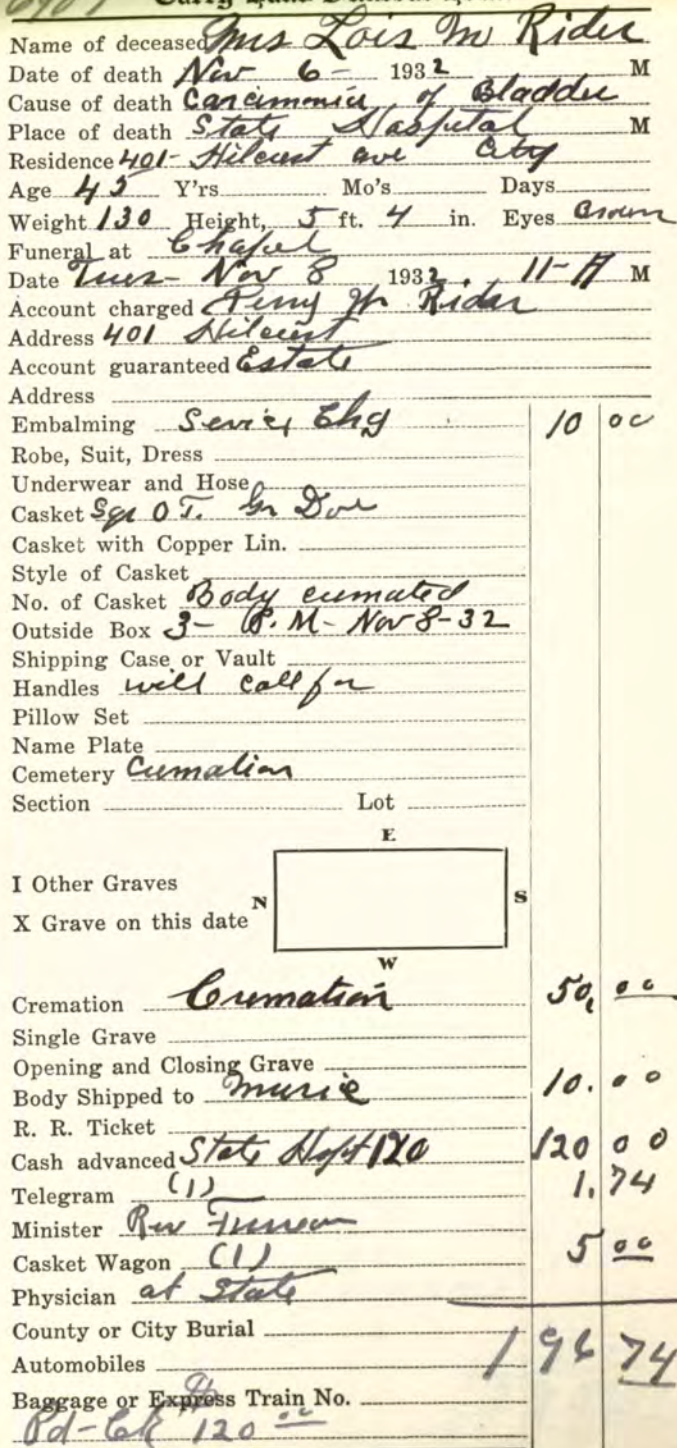 Name of deceased Mrs Lois M Rider
Date of death Nov 6- 1932 M
Cause of death Carcimonia of Bladder
Place of death State Hospital M
Residence 401- Hilcrest ave City
Age 45 Y'rs Mo's Days
Weight 130 Height, 5 ft. 4 in. Eyes Brown
Funeral at Chapel
Date Tues- Nov 8 1932 11-A M
Account charged Perry Rider
Address 401 Hilcrest
Account guaranteed Estate
Address
Embalming Service Chg 10 00
Robe, Suit, Dress
Underwear and Hose
Casket Sqr O.T. Gr Doe
Casket with Copper Lin.
Style of Casket
No. of Casket Body cremated
Outside Box 3- P.M- Nov 8-32
Shipping Case or Vault
Handles will call for
Pillow Set
Name Plate
Cemetery Cremation
Section Lot
E
I Other Graves
N S
X Grave on this date
W
Cremation Cremation 50, 00
Single Grave
Opening and Closing Grave
Body Shipped to music 10. 00
R. R. Ticket
Cash advanced State Hospt 120 120 00
Telegram (1) 1. 74
Minister Rev
Casket Wagon (1) 5 00
Physician at State
County or City Burial
196 74
Automobiles
Baggage or Express Train No.
Pd-Ck $120.00